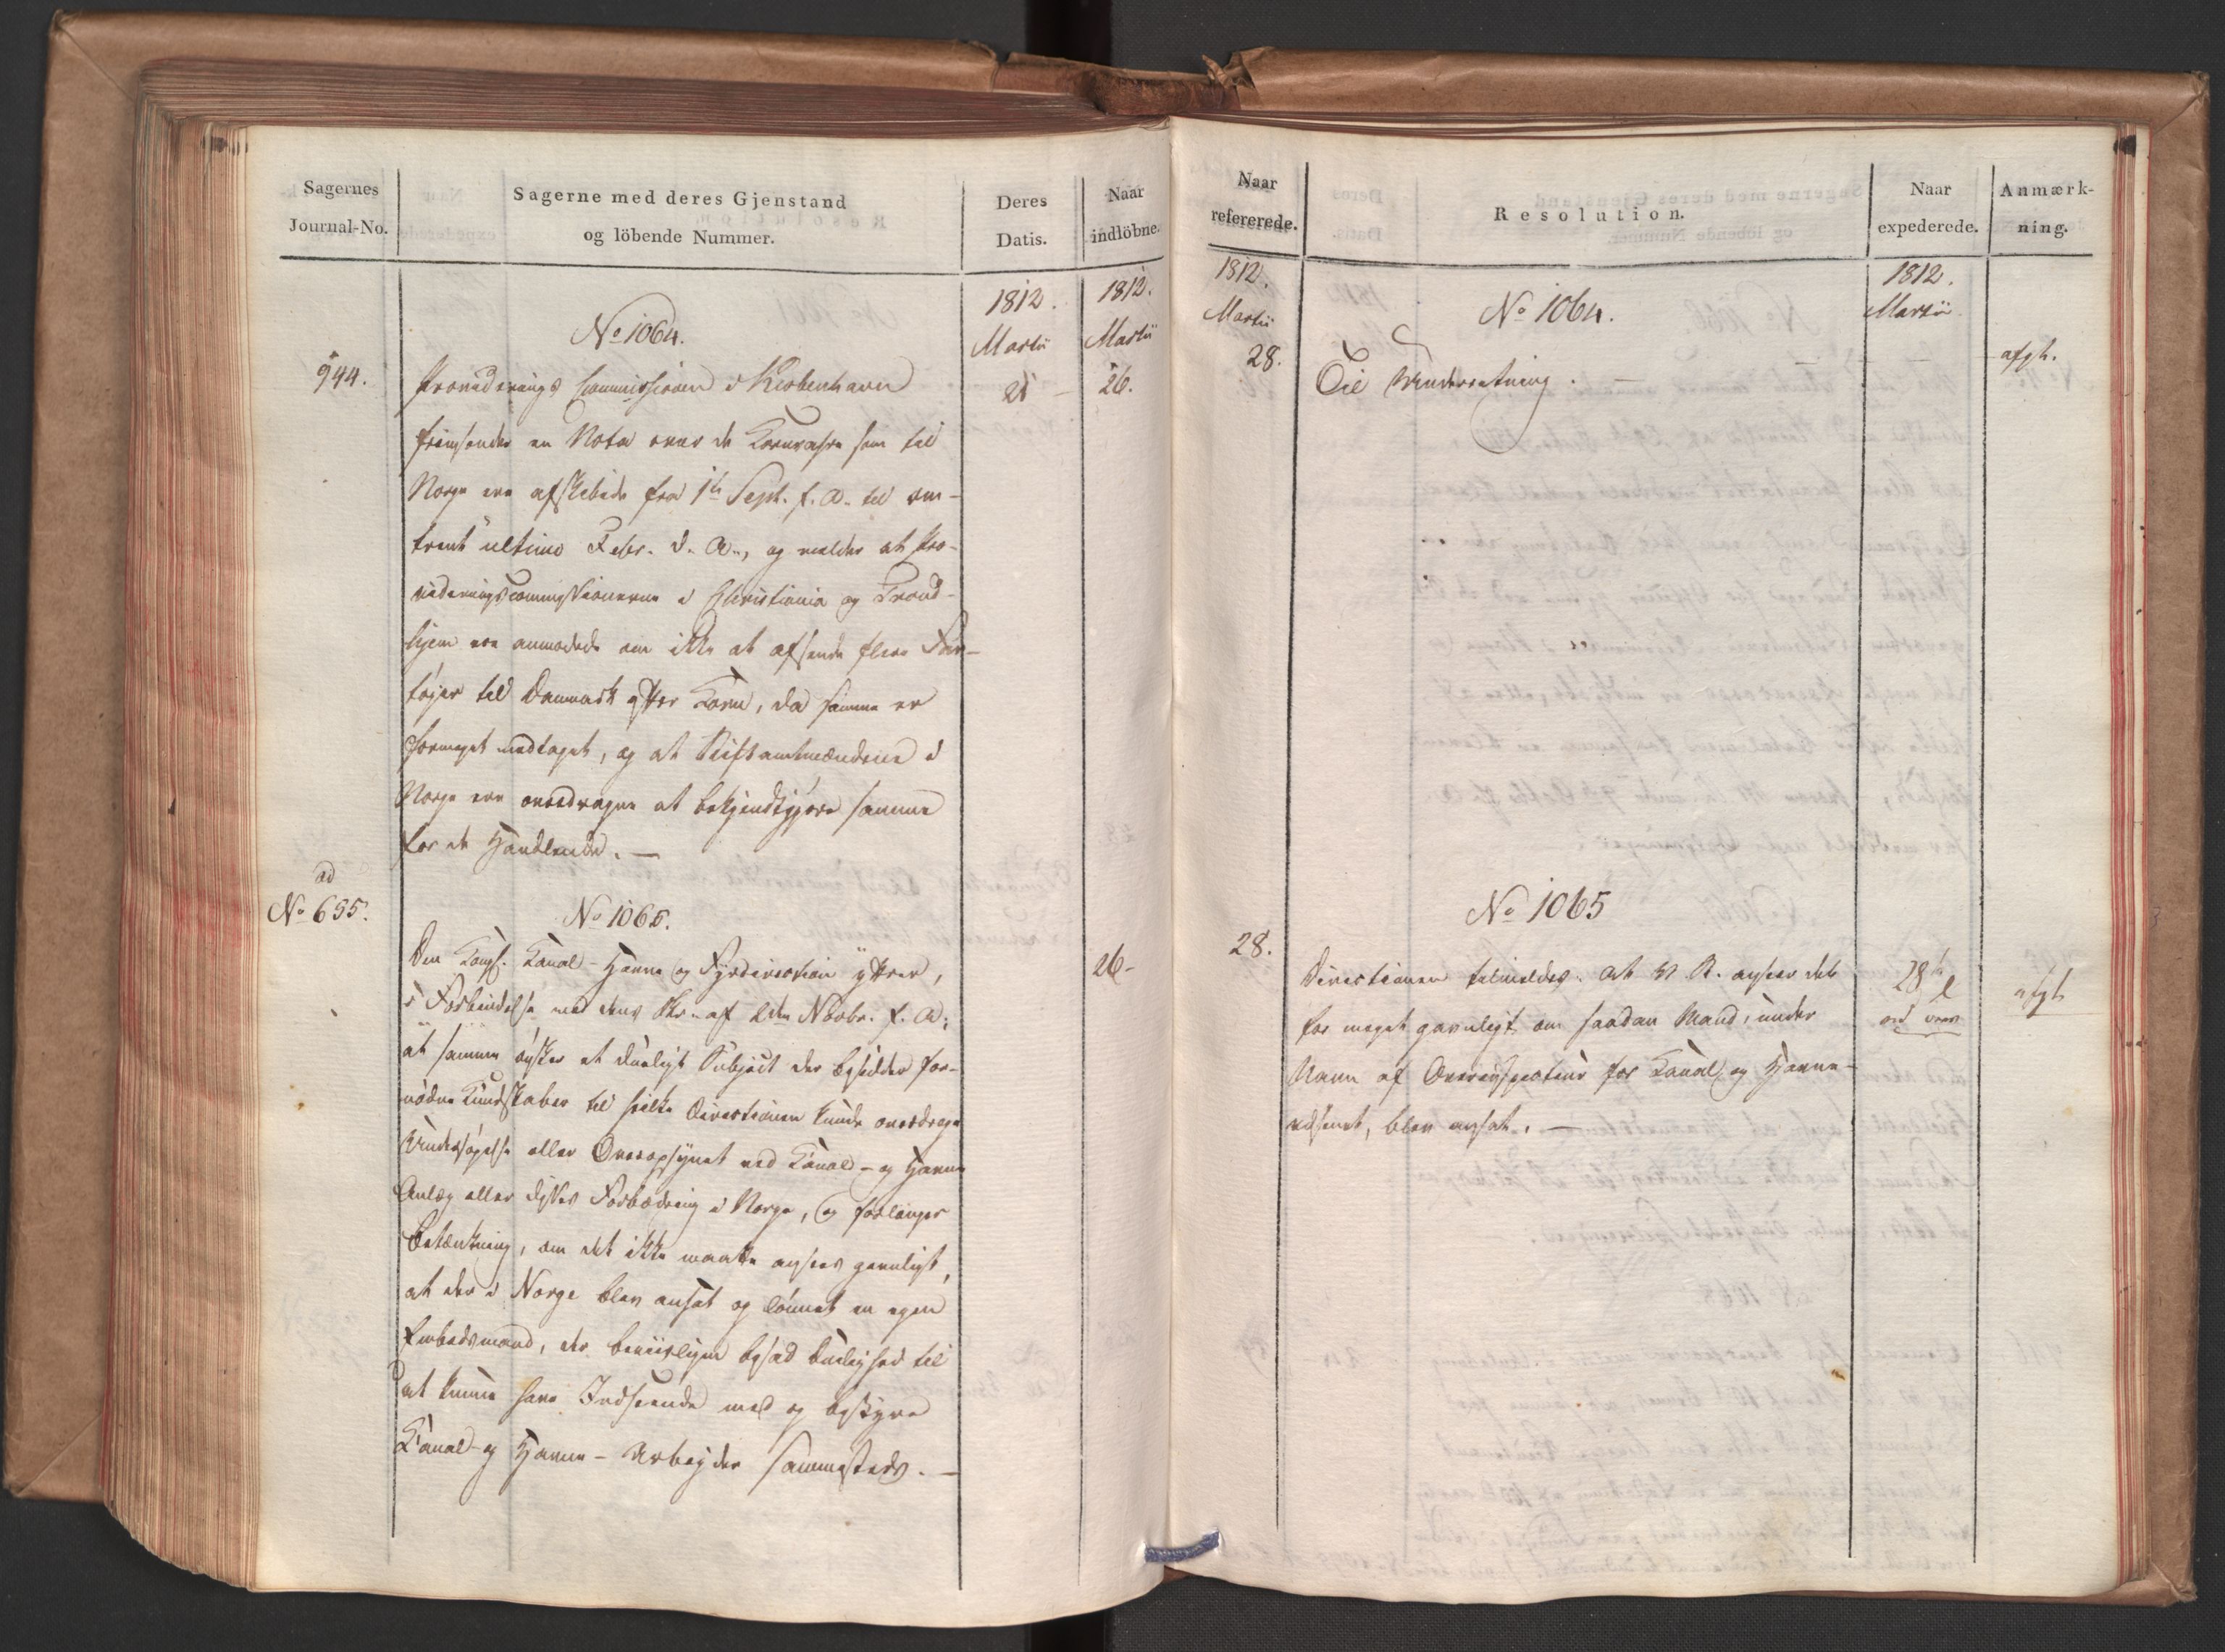 Sagernes
Journal-No.
Sagerne med deres Gjenstand
og löbende Nummer.
Deres
Datis.
Naar
indlöbne.
1812.
Martii
1812.
Martii
No 1064.
944.
21 -
26.
Providerings Commissionen i Kiöbenhavn
fremsender en Nota over de Kornvahre som til
Norge ere afskibede fra 1ste Sept. f. A. til om-
trent ultimo Febr. d. A., og melder at Pro-
videringscommissionerne i Christiania og Trond-
hjem ere anmodede om ikke at afsende flere Far-
töjer til Danmark efter Korn, da samme er
formeget medtaget, og at Stiftamtmændene i
Norge ere overdragne at bekjendtgjöre samme
for de Handlende. —
ad
No 655.
No 1065.
26-
Den Kongl. Kanal- Havne og Fyrdirection yttrer,
i Forbindelse med dens Skr. af 2den Novbr. f. A.,
at samme önsker et dueligt Subject der besidder for-
nödne Kundskaber til hvilke Directionen kunde overdrage
Undersögelse eller Overopsynet ved Kanal- og Havne
Anlæg eller disses Forbedring i Norge, og forlanger
Betænkning, om det ikke maatte ansees gavnligt,
at der i Norge blev ansat og lönnet en egen
Embedsmand, der beviisligen besad Duelighed til
at kunne have Indseende med og bestyre
Kanal- og Havne- Arbejder sammesteds. —
Naar
refererede.
Resolution.
Naar
expederede.
Anmærk-
ning.
1812.
Martii
1812.
Martii
No 1064.
28.
Til Underretning. —
afgh.
No 1065
28.
Directionen tilmeldes. at R. ansees det
for meget gavnligt om saadan Mand, under
Navn af Overinspecteur for Kanal og Havne-
væsenet, blev ansat. —
28
afgh